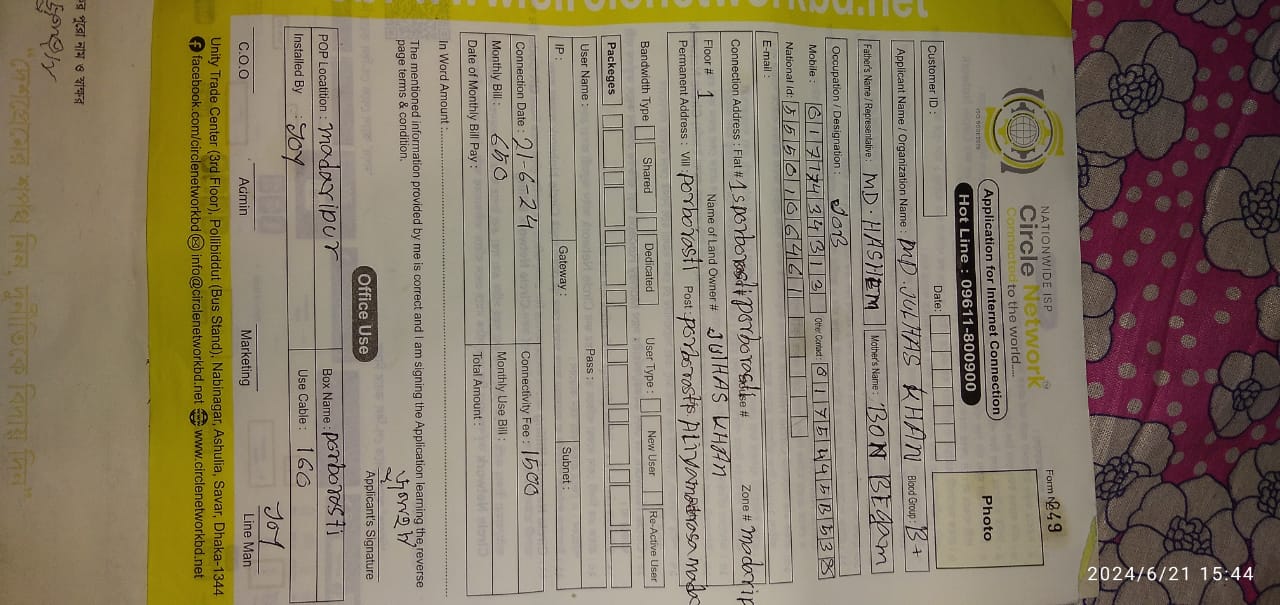 NATIONWIDE ISP
Circle Network
Connected to the world....
Form № 849
Application for Internet Connection
Hot Line : 09611-800900
Photo
Customer ID :
Date:
Applicant Name / Organization Name : MD. JULHAS KHAN Blood Group : B+
Father's Name / Representative : MD. HASHEM Mother's Name : BON BEGAM
Occupation / Designation : JOB
Mobile : Other Contact :
National Id: 5550106461
E-mail :
Connection Address : Flat # 1 Zone #
Floor # 1 Name of Land Owner # JULHAS KHAN
Permanent Address : Vill : porborasti Post :
Bandwidth Type Shared Dedicated User Type : New User Re-Active User
Packeges
User Name : Pass :
IP : Gateway : Subnet :
Connection Date : 21-6-24 Connectivity Fee : 1500
Monthly Bill : 650 Monthly Use Bill :
Date of Monthly Bill Pay : Total Amount :
In Word Amount :
The mentioned information provided by me is correct and I am signing the Application learning the reverse
page terms & condition.
Applicant's Signature
Office Use
POP Locattion : madaripur Box Name : porborasti
Installed By : JOY Use Cable : 160
JOY
C.O.O Admin Marketing Line Man
Unity Trade Center (3rd Floor), Pollibiddut (Bus Stand), Nabinagar, Ashulia, Savar, Dhaka-1344
facebook.com/circlenetworkbd info@circlenetworkbd.net www.circlenetworkbd.net
পুরো নাম ও স্বাক্ষর
2024/6/21 15:44